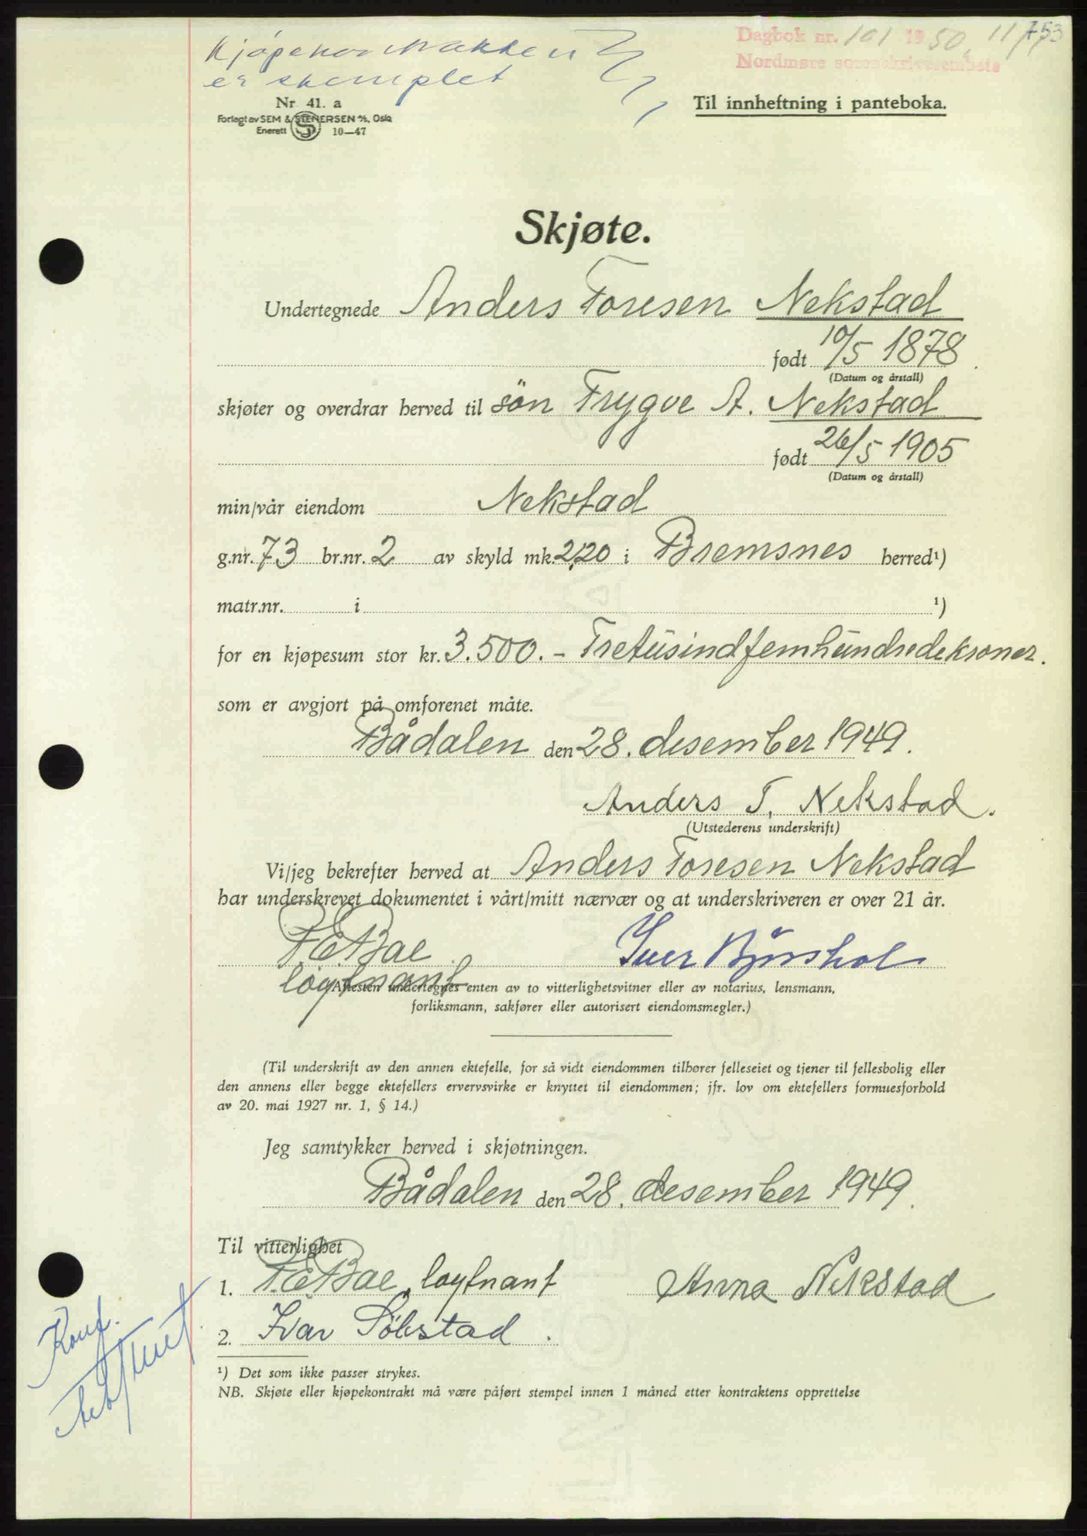 753
Dagbok nr. 101 1950, 11/1
Nordmøre sorenskriverembete
Kjøpekontrakten
er stemplet
Nr 41. a
Forlagt av SEM & STENERSEN A/S, Oslo
Enerett 10—47
Til innheftning i panteboka.
Skjøte.
Undertegnede Anders Toresen Nekstad
født 10/5 1878
(Datum og årstall)
skjøter og overdrar herved til søn Trygve A. Nekstad
født 26/5 1905
(Datum og årstall)
min/vår eiendom Nekstad
g.nr. 73 br.nr. 2 av skyld mk. 2,20 i Bremsnes herred¹)
matr.nr. i ¹)
for en kjøpesum stor kr. 3.500.- Tretusindfemhundredekroner.
som er avgjort på omforenet måte.
Bådalen den 28. desember 1949.
Anders T. Nekstad.
(Utstederens underskrift)
Vi/jeg bekrefter herved at Anders Toresen Nekstad
har underskrevet dokumentet i vårt/mitt nærvær og at underskriveren er over 21 år.
Bae Iver
løytnant
(Attesten undertegnes enten av to vitterlighetsvitner eller av notarius, lensmann,
forliksmann, sakfører eller autorisert eiendomsmegler.)
(Til underskrift av den annen ektefelle, for så vidt eiendommen tilhører felleseiet og tjener til fellesbolig eller
den annens eller begge ektefellers ervervsvirke er knyttet til eiendommen; jfr. lov om ektefellers formuesforhold
av 20. mai 1927 nr. 1, § 14.)
Jeg samtykker herved i skjøtningen.
Bådalen den 28. desember 1949.
Til vitterlighet
1. Bae, løytnant Anna Nekstad
2. Ivar Sølstad.
Konf.
¹) Det som ikke passer strykes.
NB. Skjøte eller kjøpekontrakt må være påført stempel innen 1 måned etter kontraktens opprettelse